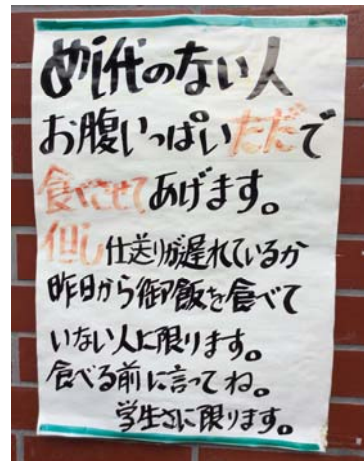 めし代のない人
お腹いっぱいただで
食べさせてあげます。
但し仕送りが遅れているか
昨日から御飯を食べて
いない人に限ります。
食べる前に言ってね。
学生さんに限ります。